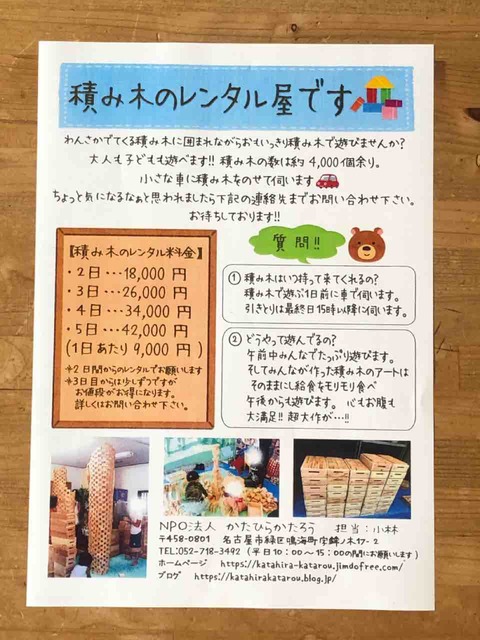 積み木のレンタル屋です
わんさかでてくる積み木に囲まれながらおもいっきり積み木で遊びませんか?
大人も子どもも遊べます!! 積み木の数は約4,000個余り。
小さな車に積み木をのせて伺います
ちょっと気になるなぁと思われましたら下記の連絡先までお問い合わせ下さい。
お待ちしております!!
【積み木のレンタル料金】
・2日…18,000 円
・3日…26,000 円
・4日…34,000 円
・5日…42,000 円
(1日あたり 9,000 円 )
*2日間からのレンタルでお願いします
*3日目からは少しずつですが
お値段がお得になります。
詳しくはお問い合わせ下さい。
質問!!
① 積み木はいつ持って来てくれるの?
積み木で遊ぶ1日前に車で伺います。
引きとりは最終日15時以降に伺います。
② どうやって遊んでるの?
午前中みんなでたっぷり遊びます。
そしてみんなが作った積み木のアートは
そのままにし給食をモリモリ食べ
午後からも遊びます。 心もお腹も
大満足!! 超大作が…!!
NPO法人 かたひらかたろう 担当:小林
〒458-0801 名古屋市緑区鳴海町字鉾ノ木17-2
TEL:052-718-3492 (平日10:00~15:00の間にお願いします)
ホームページ https://katahira-katarou.jimdofree.com/
ブログ https://katahirakatarou.blog.jp/